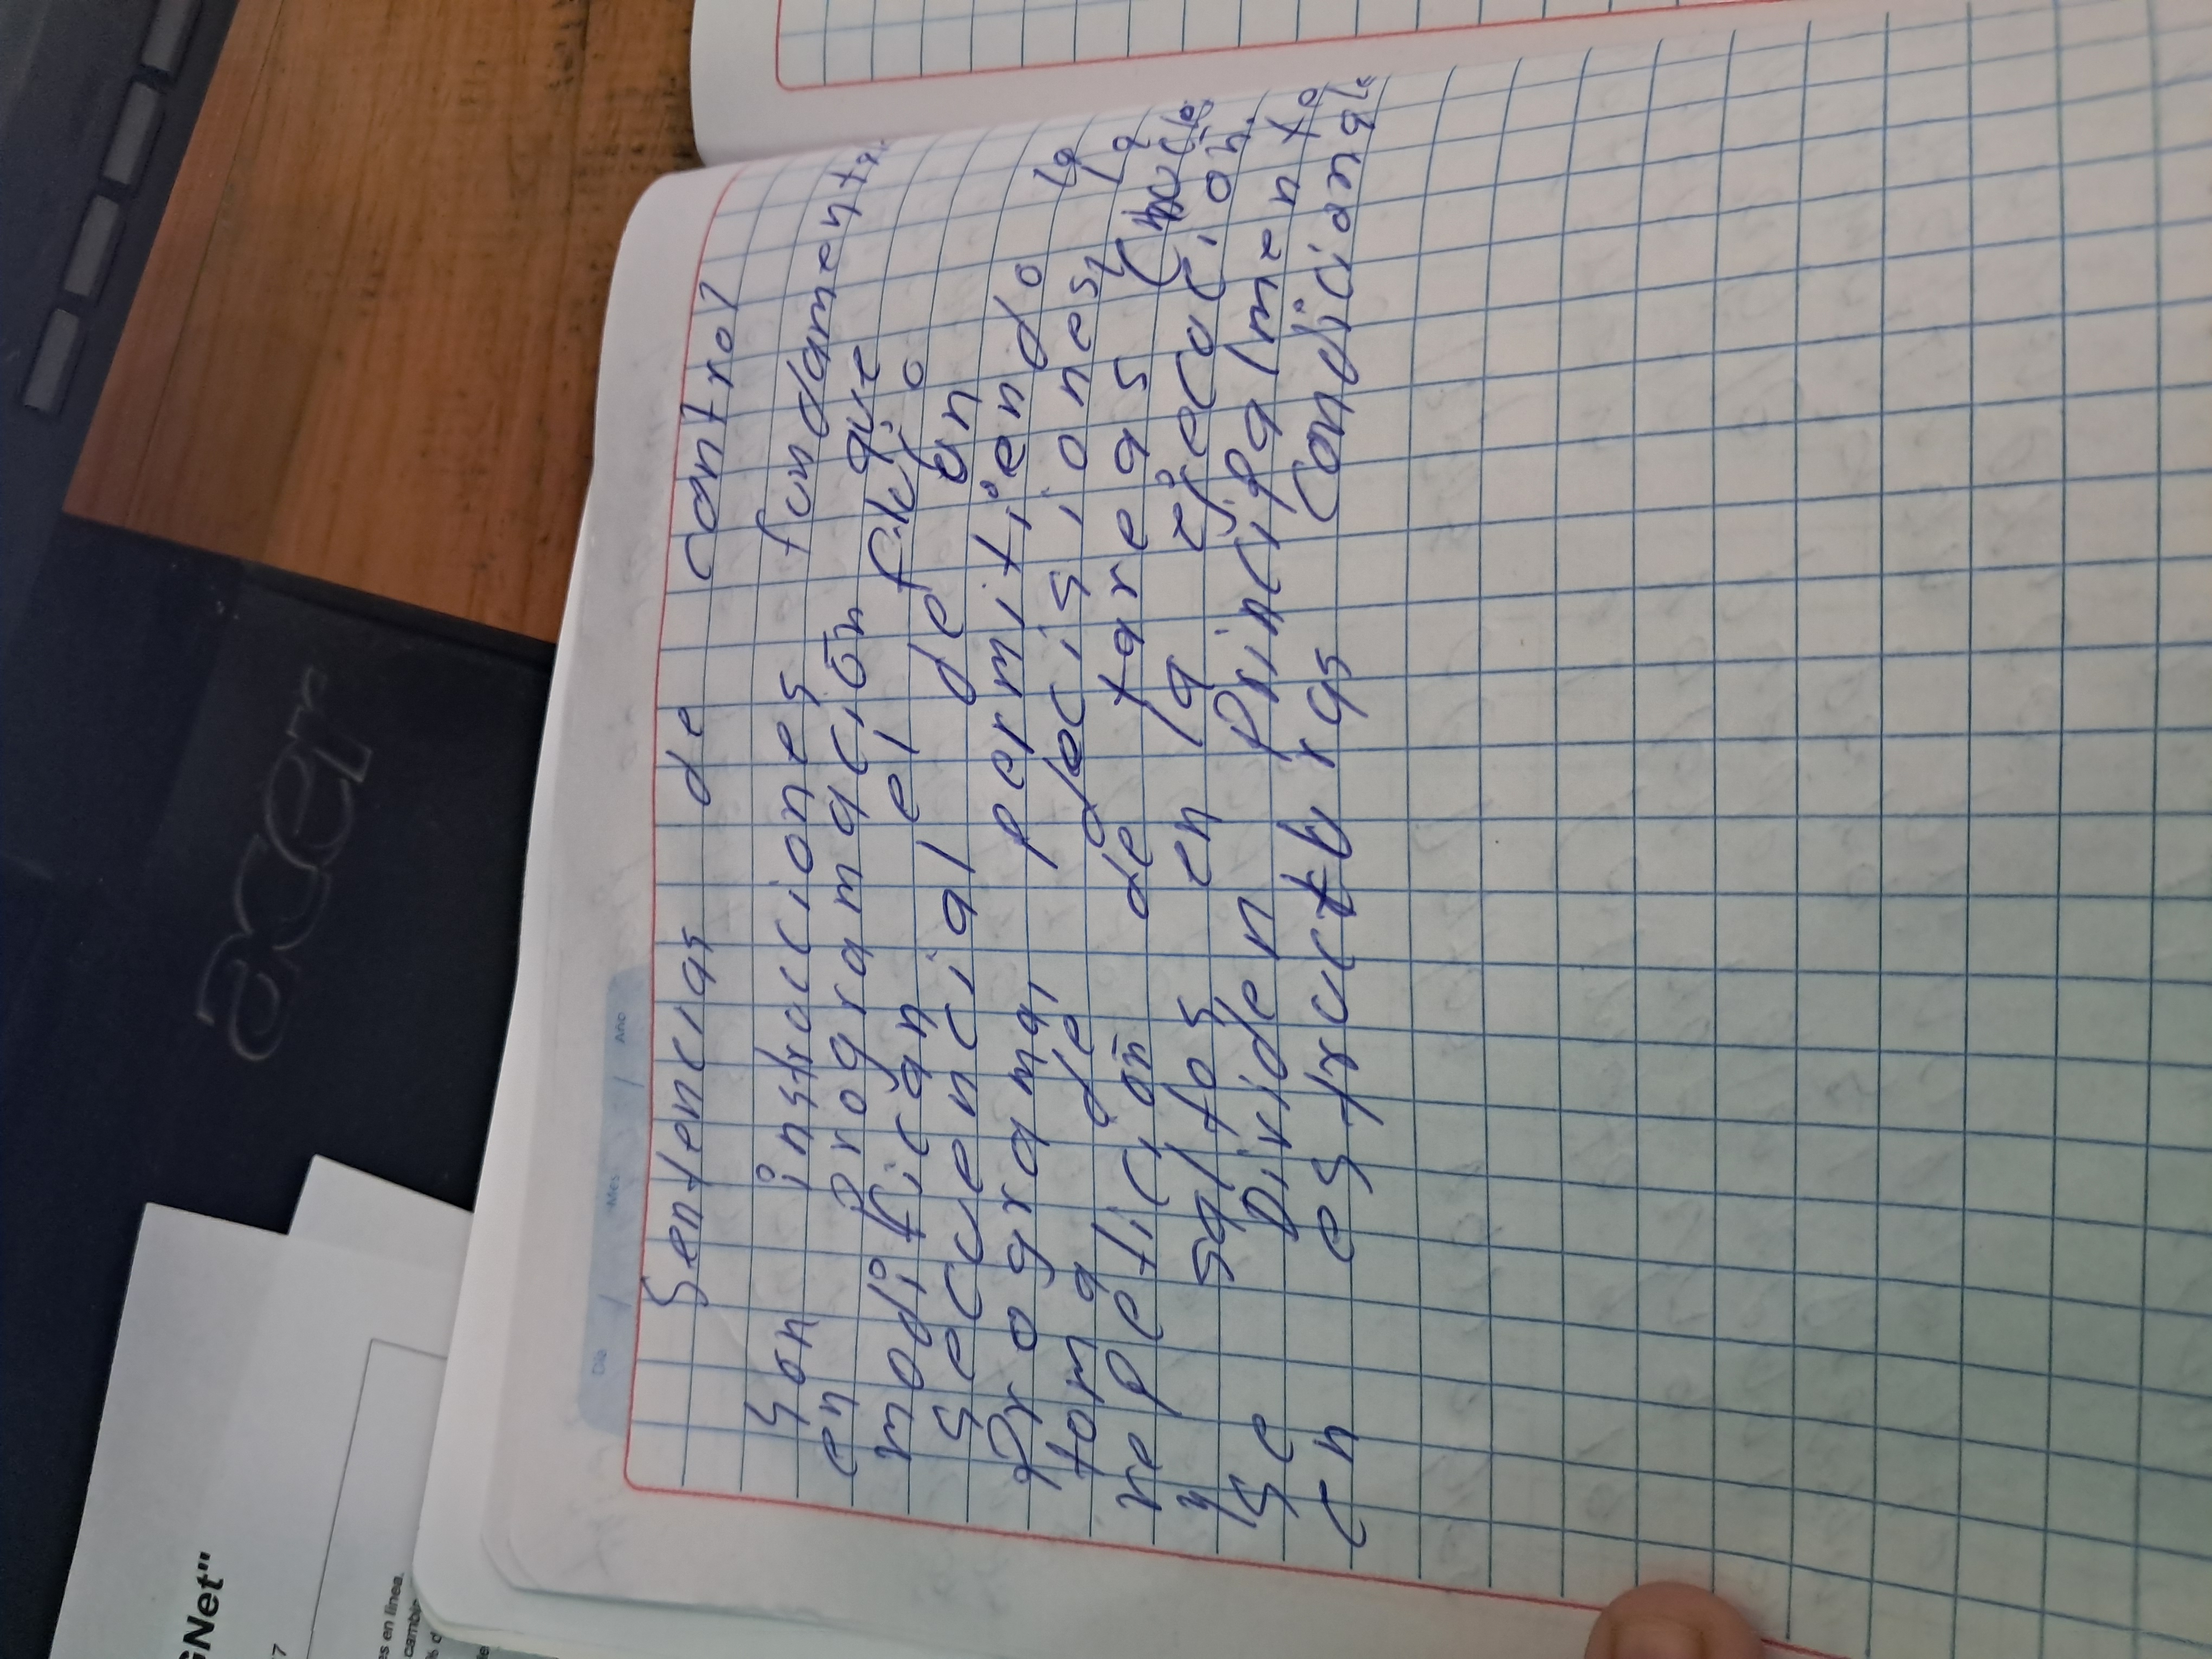 Sentencias de control
Son instrucciones fundamenta
en Programación que
modifican el flujo
secuencial de un
Programa, permitiendo la
toma de decisiones, la
repetición de tareas (bucles
y saltos en la ejecución.
Se Dividen Principalmento
en estructuras Condicionale
Día / Mes / Año
acer
GNet"
7
es en línea.
cambi
% d